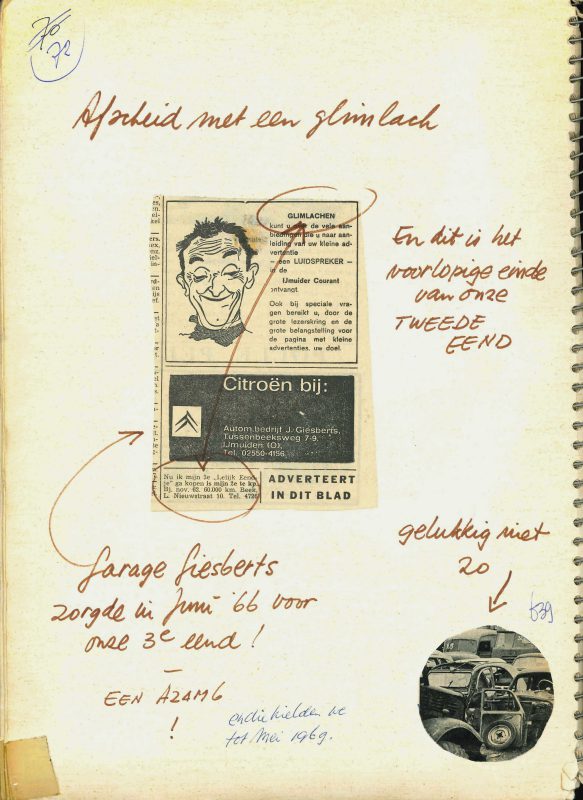 70
72
Afscheid met een glimlach
GLIMLACHEN
kunt u om de vele aan-
biedingen die u naar aan-
leiding van uw kleine ad-
vertentie
— een LUIDSPREKER —
in de
IJmuider Courant
ontvangt
Ook bij speciale vra-
gen bereikt u, door de
grote lezerskring en de
grote belangstelling voor
de pagina met kleine
advertenties, uw doel.
Citroën bij:
Autom.bedrijf J. Giesberts,
Tussenbeeksweg 7-9,
IJmuiden (O),
Tel. 02550-4156
Nu ik mijn 3e „Lelijk Eend-
je" ga kopen is mijn 2e te kp.
Bij. nov. 62. 60.000 km. Boek,
L. Nieuwstraat 10. Tel.
ADVERTEERT
IN DIT BLAD
En dit is het
voorlopige einde
van onze
TWEEDE
EEND
gelukkig niet
zo
639
Garage Giesberts
zorgde in Juni '66 voor
onze 3e eend!
—
EEN AZAM6
!
en die hielden we
tot Mei 1969.